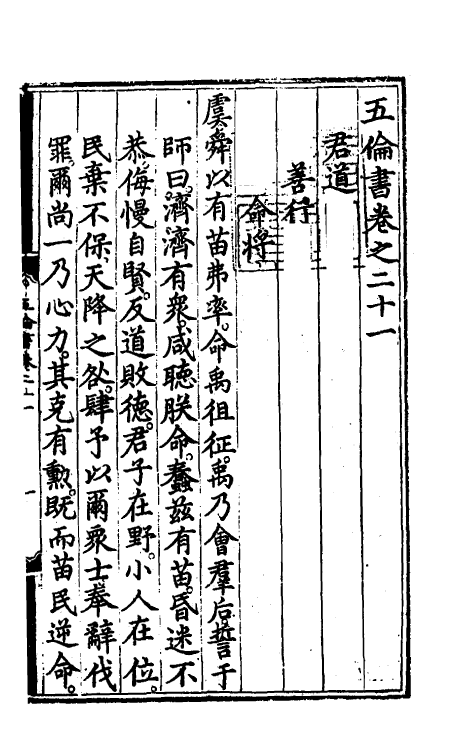 五倫書卷之二十一
君道
善行
命將
虞舜以有苗弗率。命禹徂征。禹乃會羣后誓于
師曰。濟濟有衆。咸聽朕命。蠢茲有苗。昏迷不
恭。侮慢自賢。反道敗德。君子在野。小人在位。
民棄不保。天降之咎。肆予以爾衆士。奉辭伐
罪。爾尚一乃心力。其克有勳。旣而苗民逆命。
五倫書卷二十一
一